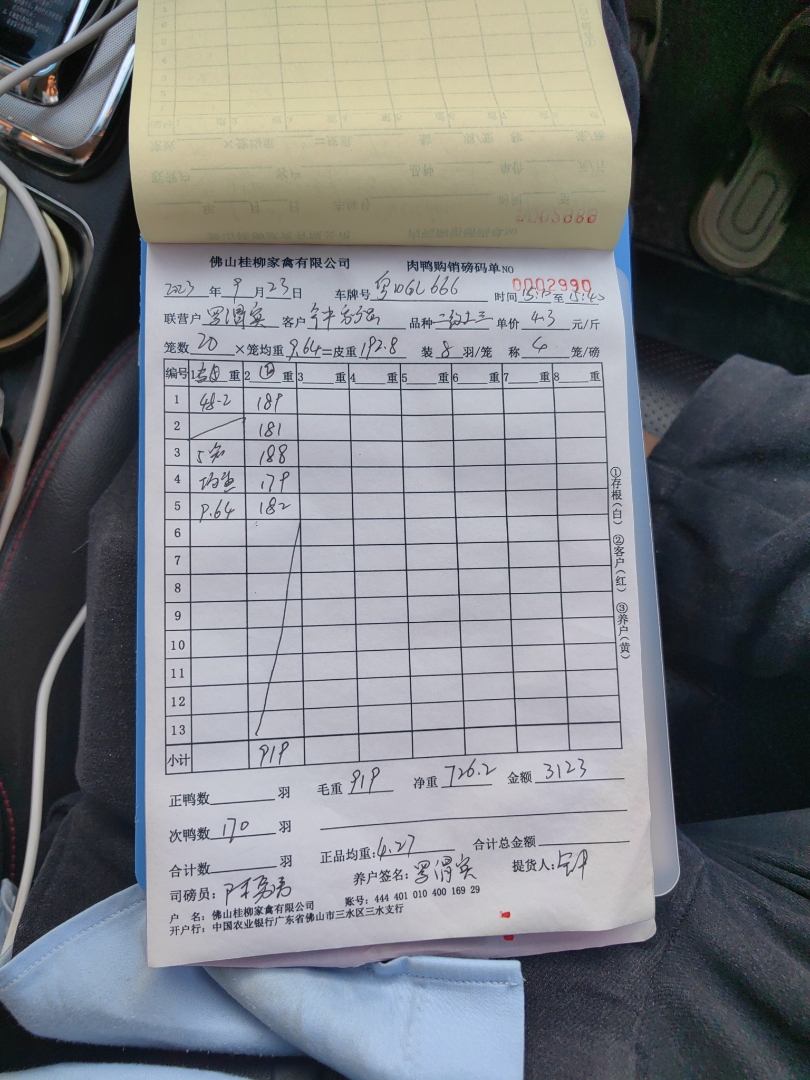 佛山桂柳家禽有限公司 肉鸭购销磅码单 NO 0002990
2023 年 9 月 23 日 车牌号 粤DGL666 时间 15:15 至 15:40
联营户 罗润实 客户 品种 单价 4.3 元/斤
笼数 20 ×笼均重 9.64 =皮重 192.8 装 8 羽/笼 称 4 笼/磅
编号 1 重 2 重 3 重 4 重 5 重 6 重 7 重 8 重
1 48.2 189
2 181
3 5 188
4 179
5 9.64 182
6
7
8
9
10
11
12
13
小计 919
①存根(白) ②客户(红) ③养户(黄)
正鸭数 羽 毛重 919 净重 726.2 金额 3123
次鸭数 170 羽
合计数 羽 正品均重: 4.27 合计总金额
司磅员: 养户签名: 罗润实 提货人:
户 名: 佛山桂柳家禽有限公司 账号: 444 401 010 400 169 29
开户行: 中国农业银行广东省佛山市三水区三水支行